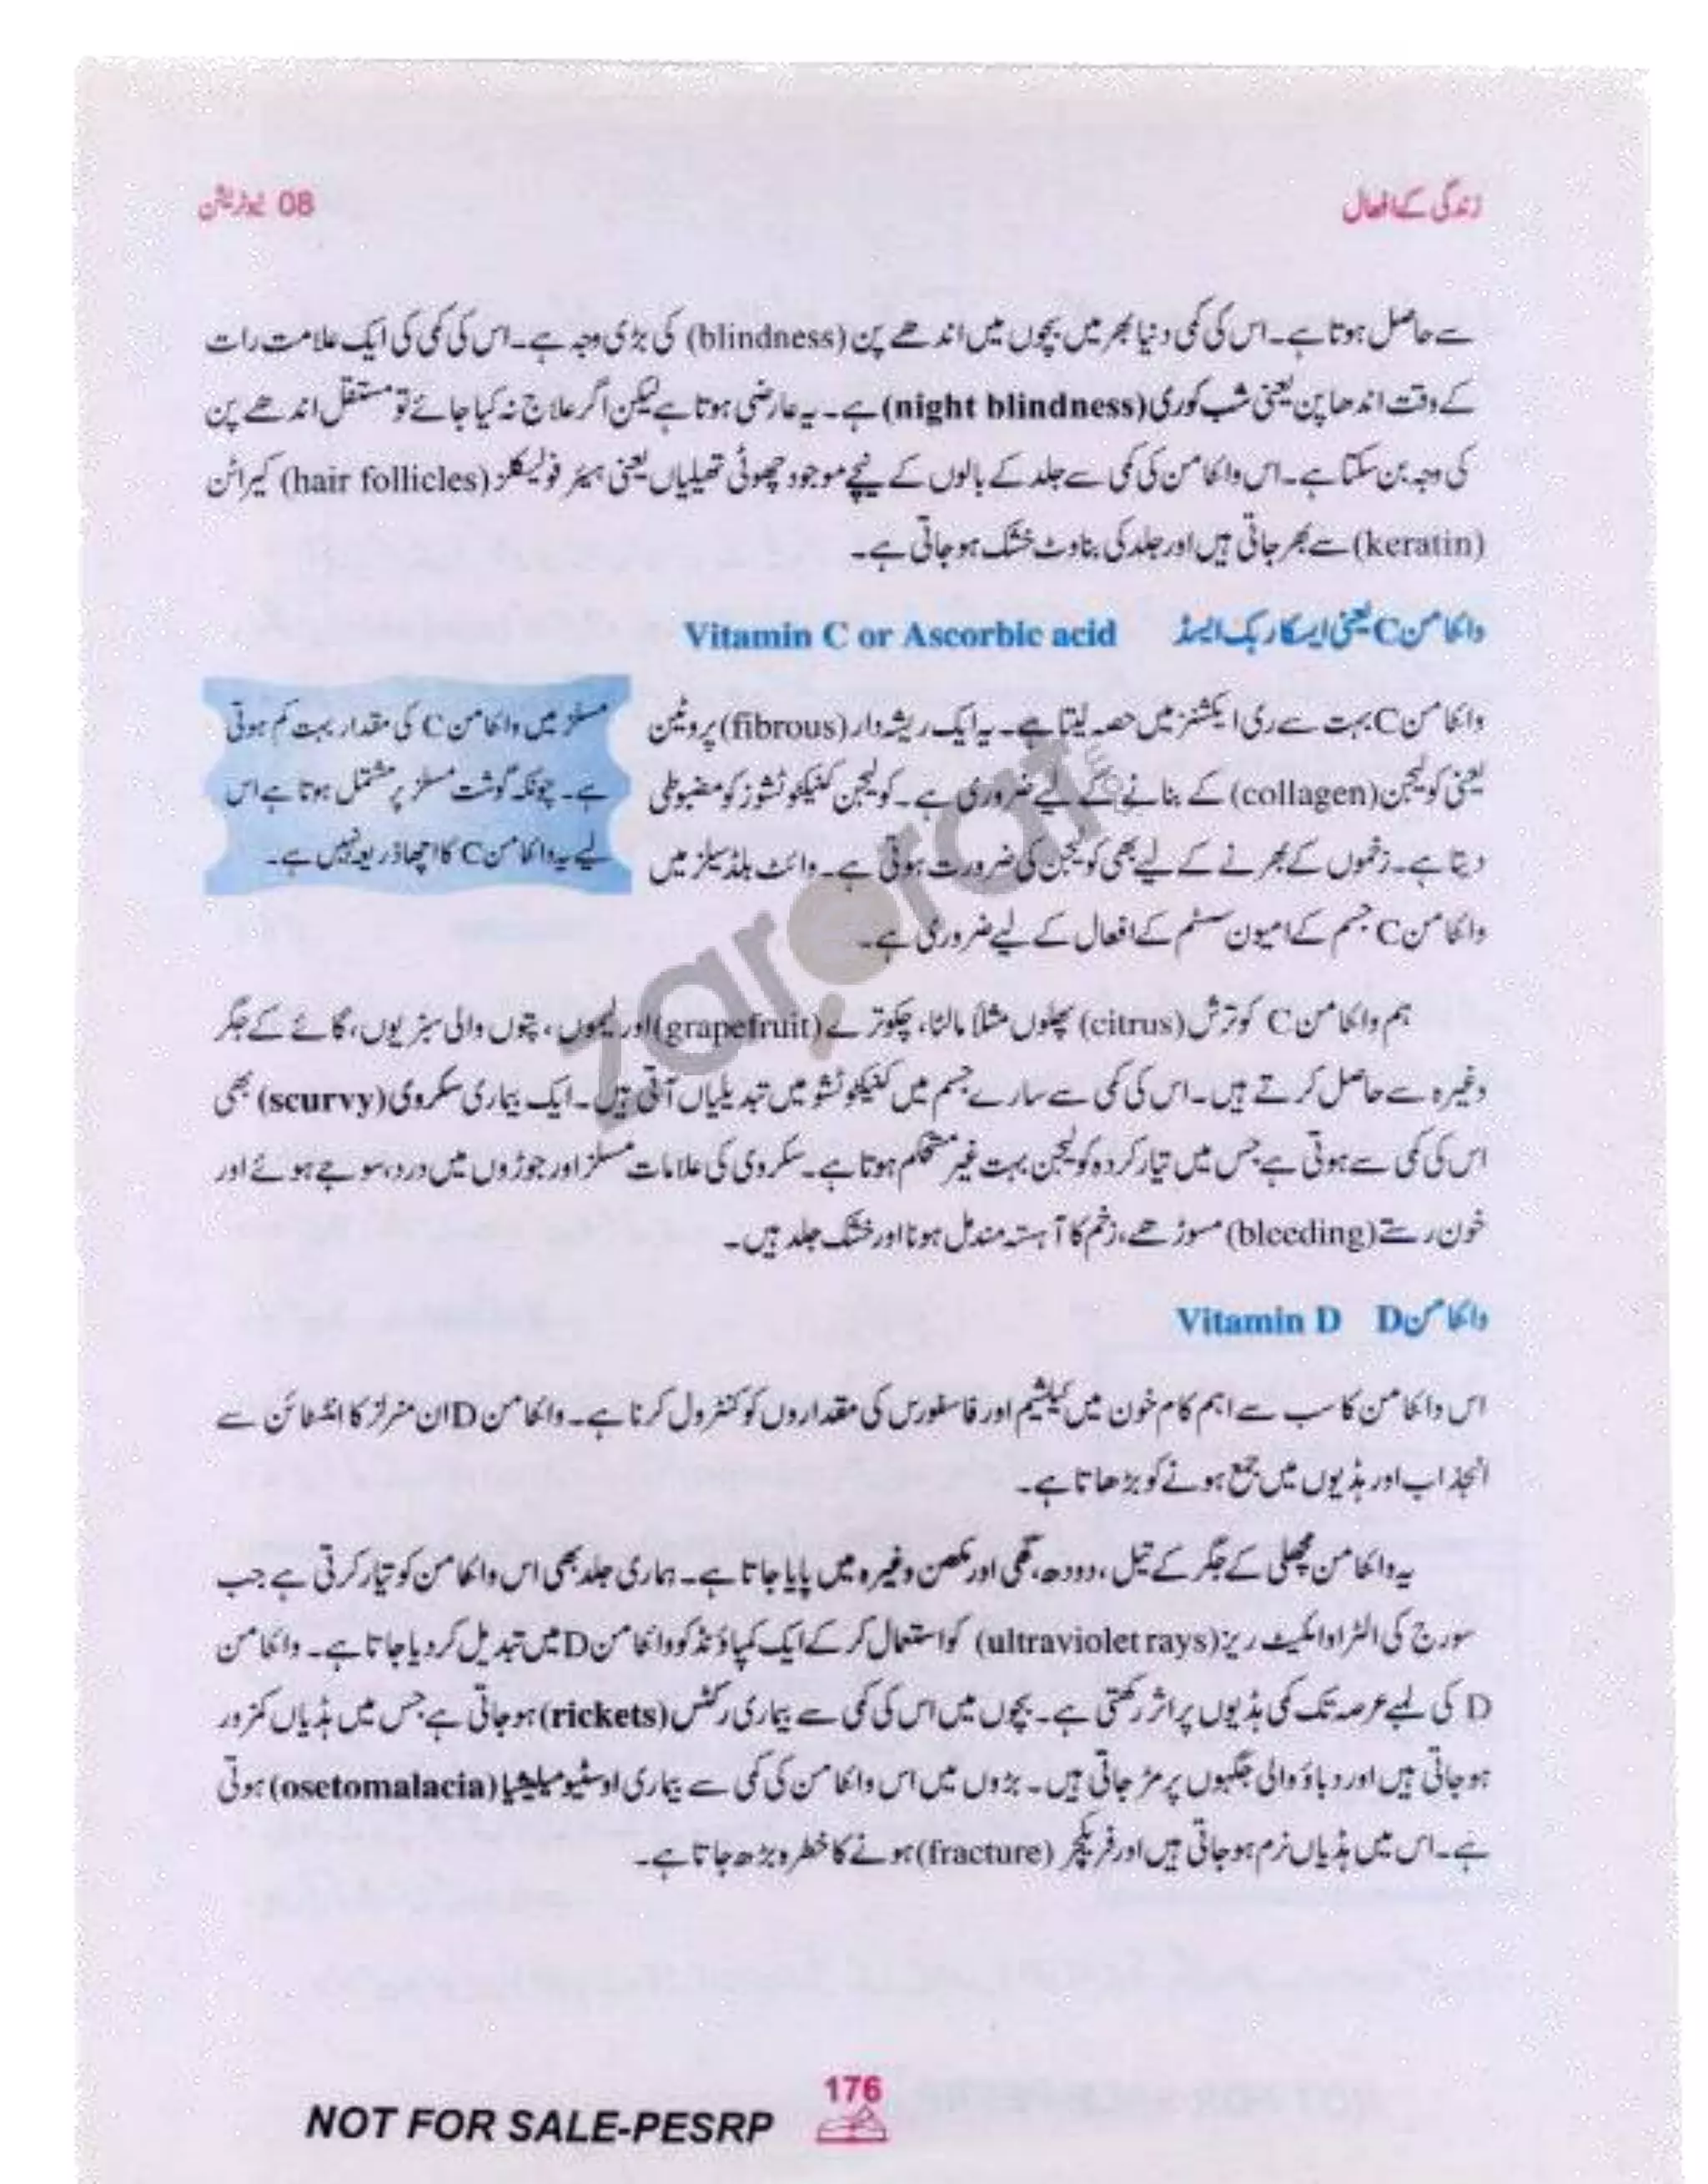 زندگی کے افعال
08 نیوٹریشن
سے حاصل ہوتا ہے۔ اس کی کمی دنیا بھر میں بچوں میں اندھے پن (blindness) کی بڑی وجہ ہے۔ اس کی کمی کی ایک علامت رات
کے وقت اندھا پن یعنی شب کوری (night blindness) ہے۔ یہ عارضی ہوتا ہے لیکن اگر علاج نہ کیا جائے تو مستقل اندھے پن
کی وجہ بن سکتا ہے۔ اس وٹامن کی کمی سے جلد کے بالوں کے نیچے موجود چھوٹی تھیلیاں یعنی ہیئر فولیکلز (hair follicles) کیراٹن
(keratin) سے بھر جاتی ہیں اور جلد کی بناوٹ خشک ہو جاتی ہے۔
وائٹامن C یعنی ایسکاربک ایسڈ Vitamin C or Ascorbic acid
وائٹامن C بہت سے ری ایکشنز میں حصہ لیتا ہے۔ یہ ایک ریشہ دار (fibrous) پروٹین
یعنی کولیجن (collagen) کے بنانے کے لیے ضروری ہے۔ کولیجن کنیکٹو ٹشوز کو مضبوطی
دیتا ہے۔ زخموں کے بھرنے کے لیے بھی کولیجن کی ضرورت ہوتی ہے۔ وائٹ بلڈ سیلز میں
وائٹامن C جسم کے امیون سسٹم کے افعال کے لیے ضروری ہے۔
مسلز میں وائٹامن C کی مقدار بہت کم ہوتی
ہے۔ چونکہ گوشت مسلز پر مشتمل ہوتا ہے اس
لیے یہ وائٹامن C کا اچھا ذریعہ نہیں ہے۔
ہم وائٹامن C کو ترش (citrus) پھلوں مثلاً مالٹا، چکوترے (grapefruit) اور لیموں، پتوں والی سبزیوں، گائے کے جگر
وغیرہ سے حاصل کرتے ہیں۔ اس کی کمی سے سارے جسم میں کنیکٹو ٹشو میں تبدیلیاں آتی ہیں۔ ایک بیماری سکروی (scurvy) بھی
اس کی کمی سے ہوتی ہے جس میں تیار کردہ کولیجن بہت غیر مستحکم ہوتا ہے۔ سکروی کی علامات مسلز اور جوڑوں میں درد، سوجے ہوئے اور
خون رستے (bleeding) مسوڑھے، زخم کا آہستہ مندمل ہونا اور خشک جلد ہیں۔
وائٹامن D Vitamin D
اس وائٹامن کا سب سے اہم کام خون میں کیلشیم اور فاسفورس کی مقداروں کو کنٹرول کرنا ہے۔ وائٹامن D ان منرلز کا انٹسٹائن سے
انجذاب اور ہڈیوں میں جمع ہونے کو بڑھاتا ہے۔
یہ وائٹامن مچھلی کے جگر کے تیل، دودھ، گھی اور مکھن وغیرہ میں پایا جاتا ہے۔ ہماری جلد بھی اس وائٹامن کو تیار کرتی ہے جب
سورج کی الٹراوائلیٹ ریز (ultraviolet rays) کو استعمال کر کے ایک کمپاؤنڈ کو وائٹامن D میں تبدیل کر دیا جاتا ہے۔ وائٹامن
D کی لمبے عرصہ تک کمی ہڈیوں پر اثر رکھتی ہے۔ بچوں میں اس کی کمی سے بیماری رکٹس (rickets) ہو جاتی ہے جس میں ہڈیاں کمزور
ہو جاتی ہیں اور دباؤ والی جگہوں پر مڑ جاتی ہیں۔ بڑوں میں اس وائٹامن کی کمی سے بیماری اوسٹیومیلیشیا (osetomalacia) ہوتی
ہے۔ اس میں ہڈیاں نرم ہو جاتی ہیں اور فریکچر (fracture) ہونے کا خطرہ بڑھ جاتا ہے۔
176
NOT FOR SALE-PESRP
zarorat